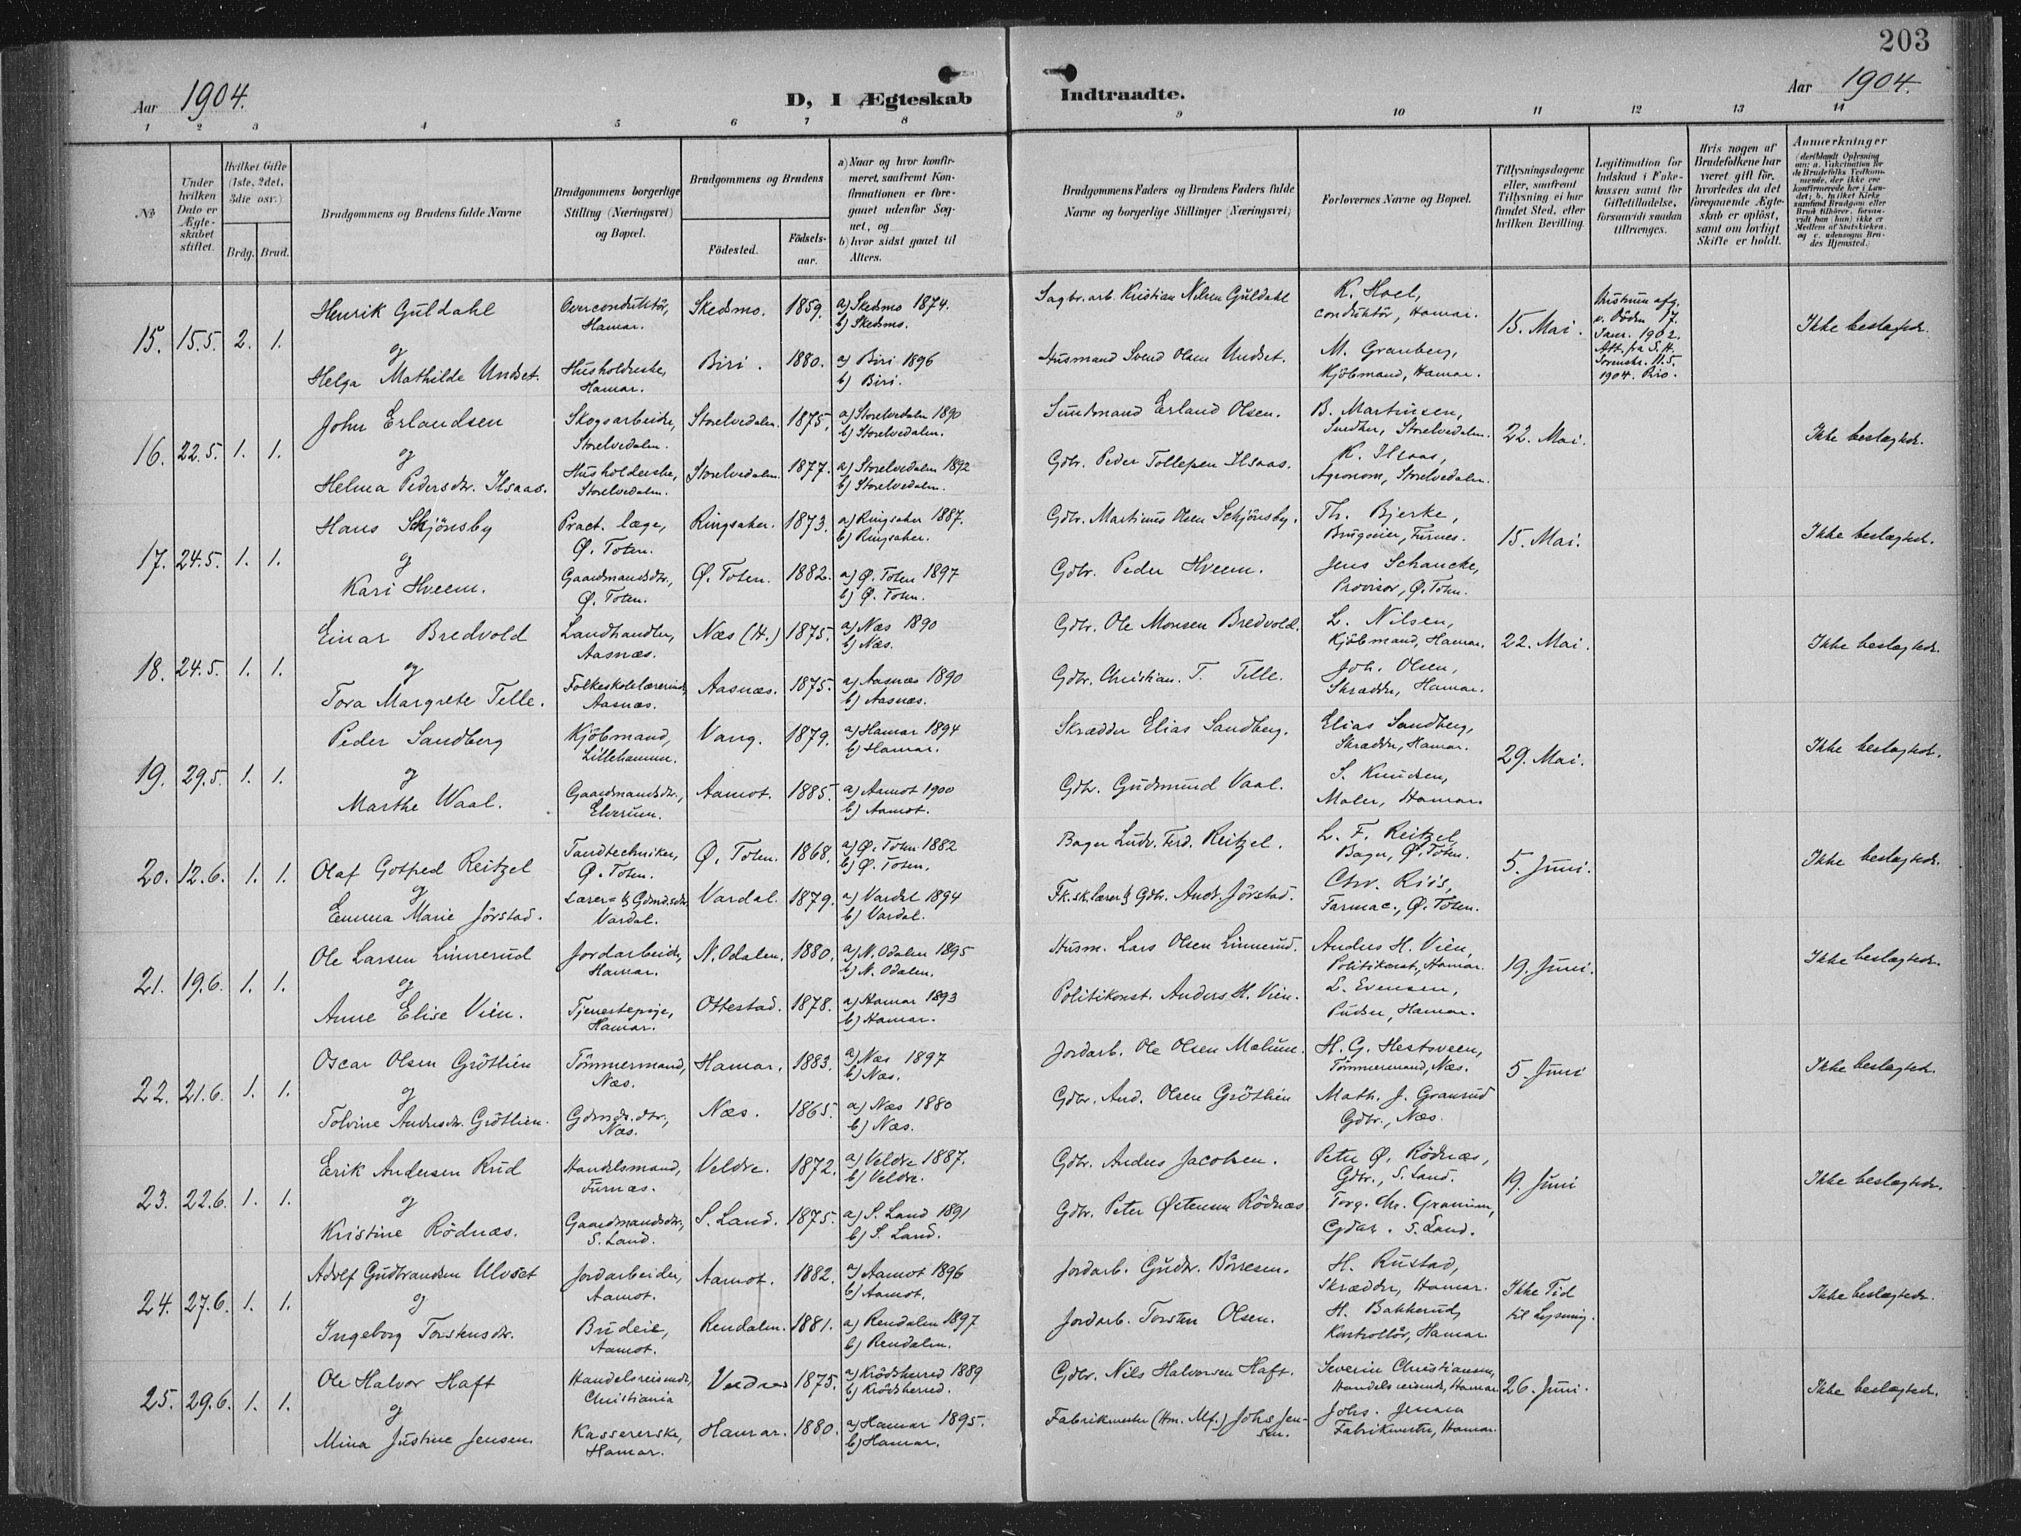 203
Aar 1904.
D, I Ægteskab
Indtraadte.
Aar 1904.
1 2 3 4 5 6 7 8 9 10 11 12 13 14
№
Under hvilken Dato er Ægteskabet stiftet.
Hvilket Gifte (1ste, 2det, 3die osv.)
Brdg. Brud.
Brudgommens og Brudens fulde Navne
Brudgommens borgerlige Stilling (Næringsvei) og Bopæl.
Brudgommens og Brudens
Fødested.
Fødselsaar.
a) Naar og hvor konfirmeret, saafremt Konfirmationen er foregaaet udenfor Sognet, og
b) hvor sidst gaaet til Alters.
Brudgommens Faders og Brudens Faders fulde Navne og borgerlige Stillinger (Næringsvei)
Forlovernes Navne og Bopæl.
Tillysningsdagene eller, saafremt Tillysning ei har fundet Sted, efter hvilken Bevilling.
Legitimation for Indskud i Enkekassen samt for Giftetilladelse, forsaavidt saadan tiltrænges.
Hvis nogen af Brudefolkene har været gift før, hvorledes da det foregaaende Ægteskab er opløst, samt om lovligt Skifte er holdt.
Anmerkninger
15. 15.5. 2. 1.
Henrik Guldahl
Overconduktör, Hamar.
Skedsmo. 1859.
a) Skedsmo 1874.
b) Skedsmo.
Sagbr. arb. Kristian Nilsen Guldahl
K. Hoel,
Conduktör, Hamar.
15. Mai.
Jan. 1902.
1904.
Ikke beslægtede.
og
Helga Mathilde Undset.
Husholderske, Hamar.
Biri. 1880.
a) Biri 1896
b) Biri.
Husmand Svend Olsen Undset.
M. Granberg,
Kjöbmand, Hamar.
16. 22.5. 1. 1.
John Erlandsen
Skogsarbeider, Storelvedalen.
Storelvedalen. 1875.
a) Storelvedalen 1890
b) Storelvedalen.
Sundmand Erland Olsen.
B. Martinsen,
Snedker, Storelvedalen.
22. Mai.
Ikke beslægtede.
og
Helma Pedersdtr. Ilsaas.
Husholderske, Storelvedalen.
Storelvedalen. 1877.
a) Storelvedalen 1892
b) Storelvedalen.
Gdbr. Peder Tollefsen Ilsaas.
K. Ilsaas,
Agronom, Storelvedalen.
17. 24.5. 1. 1.
Hans Skjönsby
Pract. læge, Ø. Toten.
Ringsaker. 1873.
a) Ringsaker 1887.
b) Ringsaker.
Gdbr. Martinus Olsen Schjönsby.
Th. Bjerke,
Brugseier, Furnes.
15. Mai.
Ikke beslægtede.
og
Kari Hveem.
Gaardmandsdtr., Ø. Toten.
Ø. Toten. 1882.
a) Ø. Toten 1897
b) Ø. Toten.
Gdbr. Peder Hveem.
Jens Schancke,
Provisor, Ø. Toten.
18. 24.5. 1. 1.
Einar Bredvold
Landhandler, Aasnæs.
Næs (H.) 1875.
a) Næs 1890
b) Næs.
Gdbr. Ole Monsen Bredvold.
L. Nilsen,
Kjöbmand, Hamar.
22. Mai.
Ikke beslægtede.
og
Tora Margrete Telle.
Folkeskolelærerinde, Aasnæs.
Aasnæs. 1875.
a) Aasnæs 1890
b) Aasnæs.
Gdbr. Christian. T. Telle.
Joh. Olsen,
Skrædder, Hamar.
19. 29.5. 1. 1.
Peder Sandberg
Kjöbmand, Lillehammer.
Vang. 1879.
a) Hamar 1894
b) Hamar.
Skrædder Elias Sandberg.
Elias Sandberg,
Skrædder, Hamar.
29. Mai.
Ikke beslægtede.
og
Marthe Waal.
Gaardmandsdtr., Elverum.
Aamot. 1885.
a) Aamot 1900
b) Aamot.
Gdbr. Gudmund Vaal.
S. Knudsen,
Maler, Hamar.
20. 12.6. 1. 1.
Olaf Gotfred Reitzel
Tandtechniker, Ø. Toten.
Ø. Toten. 1868.
a) Ø. Toten 1882
b) Ø. Toten.
Bager Ludv. Ferd. Reitzel.
L. F. Reitzel,
Bager, Ø. Toten.
5. Juni.
Ikke beslægtede.
og
Emma Marie Jörstad.
Lærer- & Gdmdsdtr. Vardal.
Vardal. 1879.
a) Vardal 1894
b) Vardal.
Fk.sk.lærer & Gdbr. Andr. Jörstad.
Chr. Riis,
Farmac., Ø. Toten.
21. 19.6. 1. 1.
Ole Larsen Linnerud
Jordarbeider, Hamar.
N. Odalen. 1880.
a) N. Odalen 1895
b) N. Odalen.
Husm. Lars Olsen Linnerud.
Anders H. Vien,
Politikonst., Hamar.
19. Juni.
Ikke beslægtede.
og
Anne Elise Vien.
Tjenestepige, Hamar.
Ottestad. 1878.
a) Hamar 1893
b) Hamar.
Politikonst. Anders H. Vien.
L. Evensen,
Pudser, Hamar.
22. 21.6. 1. 1.
Oscar Olsen Gröthien
Tömmermand, Næs.
Hamar. 1883.
a) Næs 1897
b) Næs.
Jordarb. Ole Olsen Malum.
H. G. Hestsveen,
Tömmermand, Næs.
5. Juni
Ikke beslægtede.
og
Tolvine Andersdtr. Gröthien.
Gdmds.dtr., Næs.
Næs. 1865.
a) Næs 1880
b) Næs.
Gdbr. And. Olsen Gröthien
Math. J. Granrud
Gdbr., Næs.
23. 22.6. 1. 1.
Erik Andersen Rud
Handelsmand, Furnæs.
Veldre. 1872.
a) Veldre 1887.
b) Veldre.
Gdbr. Anders Jacobsen.
Peter Ø. Rödnæs,
Gdbr., S. Land.
19. Juni
Ikke beslægtede.
og
Kristine Rödnæs.
Gaardmandsdtr., S. Land.
S. Land. 1875.
a) S. Land 1891
b) S. Land.
Gdbr. Peter Østensen Rödnæs
S. Land.
24. 27.6. 1. 1.
Adolf Gudbrandsen Ulvset
Jordarbeider, Aamot.
Aamot. 1882.
a) Aamot 1896
b) Aamot.
Jordarb. Gudbr. Börresen.
H. Rustad,
Skrædder, Hamar.
Ikke Tid til Lysning.
Ikke beslægtede.
og
Ingeborg Torstensdtr.
Budeie, Aamot.
Rendalen. 1881.
a) Rendalen 1897
b) Rendalen.
Jordarb. Torsten Olsen.
H. Bakkerud,
Kontrollör, Hamar
25. 29.6. 1. 1.
Ole Halvor Haft
Handelsreisende, Christiania
1875.
a) Krödsherred 1889
b) Krödsherred.
Gdbr. Nils Halvorsen Haft.
Severin Christiansen,
Handelsreisende, Hamar
26. Juni.
Ikke beslægtede.
og
Mina Justine Jensen.
Kassererske, Hamar.
Hamar. 1880.
a) Hamar 1895.
b) Hamar.
Fabrikmester (Hm. Mf.) Johs Jensen.
Johs. Jensen
Fabrikmester, Hamar.